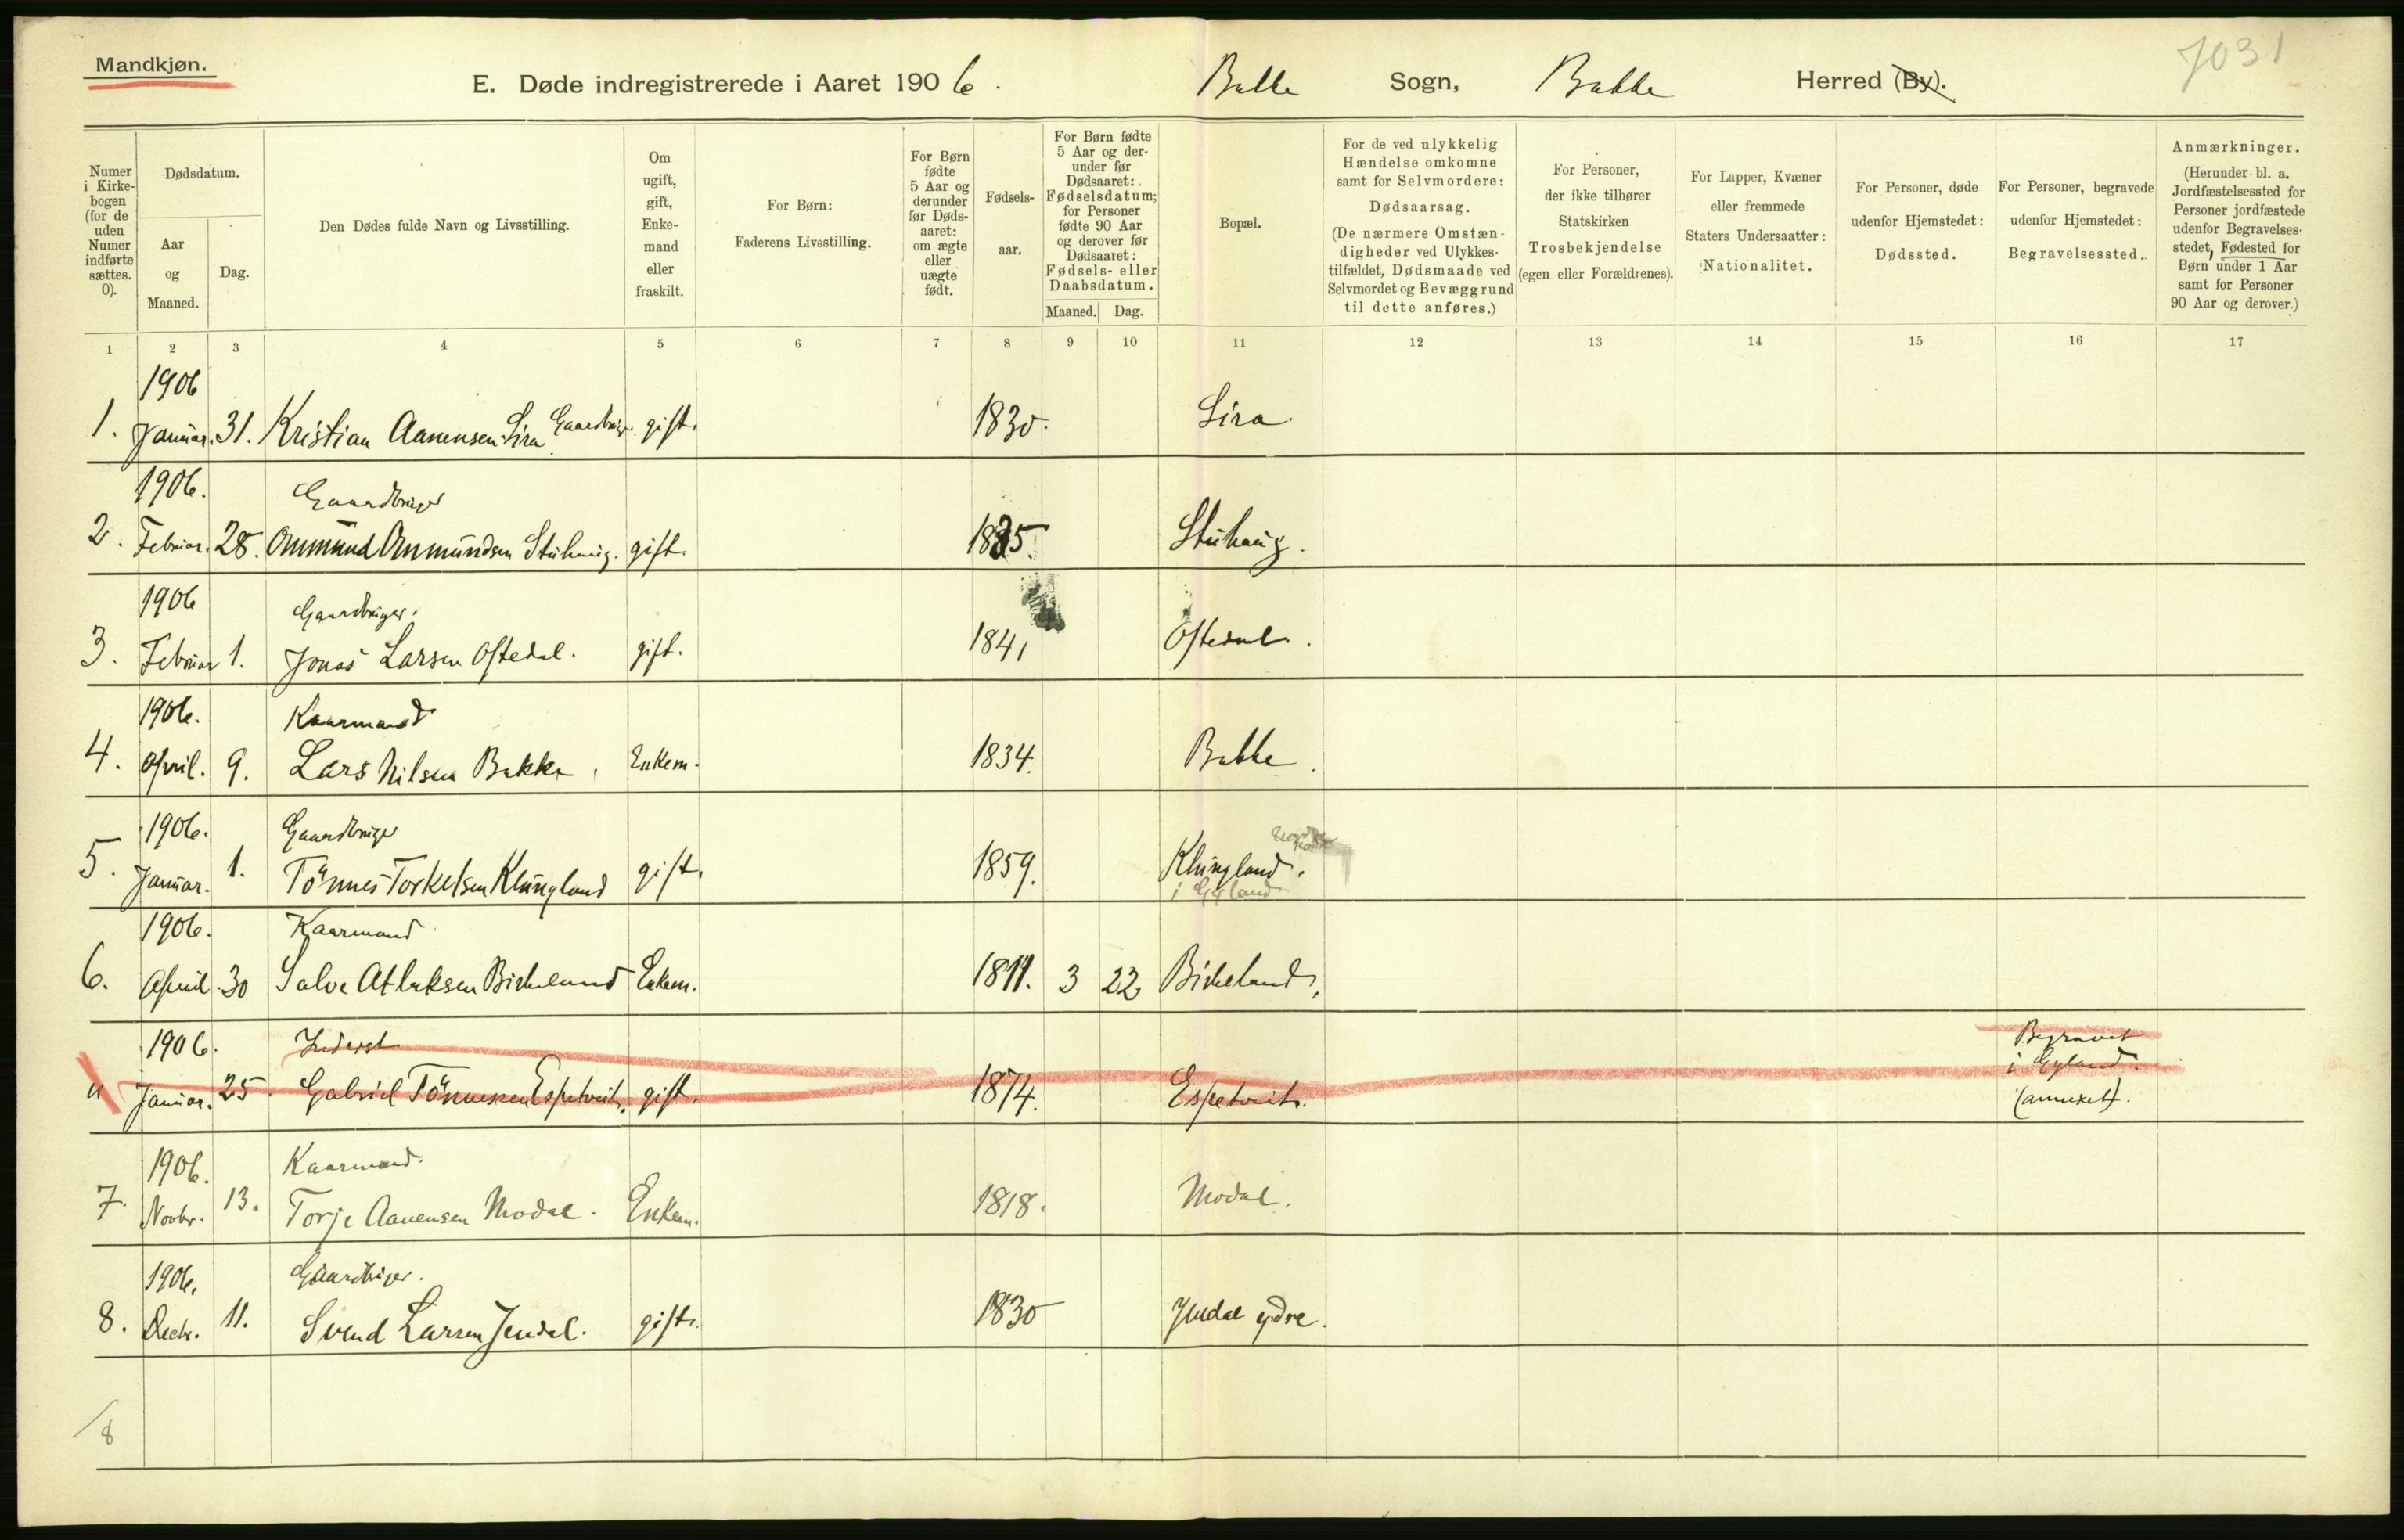 Mandkjøn.
7031
E. Døde indregistrerede i Aaret 1906. Bakke Sogn, Bakke Herred (By).
Numer i Kirkebogen (for de uden Numer indførte sættes. 0).
Dødsdatum.
Aar og Maaned.
Dag.
Den Dødes fulde Navn og Livsstilling.
Om ugift, gift, Enkemand eller fraskilt.
For Børn: Faderens Livsstilling.
For Børn fødte 5 Aar og derunder før Dødsaaret: om ægte eller uægte født.
Fødselsaar.
For Børn fødte 5 Aar og derunder før Dødsaaret: Fødselsdatum; for Personer fødte 90 Aar og derover før Dødsaaret: Fødsels- eller Daabsdatum.
Maaned. Dag.
Bopæl.
For de ved ulykkelig Hændelse omkomne samt for Selvmordere: Dødsaarsag. (De nærmere Omstændigheder ved Ulykkestilfældet, Dødsmaade ved Selvmordet og Bevæggrund til dette anføres.)
For Personer, der ikke tilhører Statskirken Trosbekjendelse (egen eller Forældrenes).
For Lapper, Kvæner eller fremmede Staters Undersaatter: Nationalitet.
For Personer, døde udenfor Hjemstedet: Dødssted.
For Personer, begravede udenfor Hjemstedet: Begravelsessted.
Anmærkninger. (Herunder bl. a. Jordfæstelsessted for Personer jordfæstede udenfor Begravelsesstedet, Fødested for Børn under 1 Aar samt for Personer 90 Aar og derover.)
1 2 3 4 5 6 7 8 9 10 11 12 13 14 15 16 17
1906
1. Januar. 31. Kristian Aanensen Lira Gaardbruger. gift. 1830. Lira.
1906. Gaardbruger
2. Februar. 28. Ommund Ommundsen Stuhaug. gift. 1835. Stuhaug.
1906 Gaardbruger.
3. Februar 1. Jonas Larsen Oftedal. gift. 1841 Oftedal.
1906. Kaarmand
4. April. 9. Lars Nilsen Bakke. Enkem. 1834. Bakke.
1906. Gaardbruger
5. Januar. 1. Tönnes Torkelsen Klungland gift. 1859. Klungland.
i Gyland
1906. Kaarmand
6. April. 30 Salve Atlaksen Birkeland Enkem. 1811. 3 22 Birkeland,
1906. Inderst Begravet
" Januar. 25. Gabriel Tönnessen Espetveit. gift. 1874. Espetveit. i Gyland.
(annexet).
1906. Kaarmand.
7. Novbr. 13. Torje Aanensen Modal. Enkem. 1818. Modal.
1906. Gaardbruger.
8. Decbr. 11. Svend Larsen Jendal. gift. 1830 Jendal ydre.
8